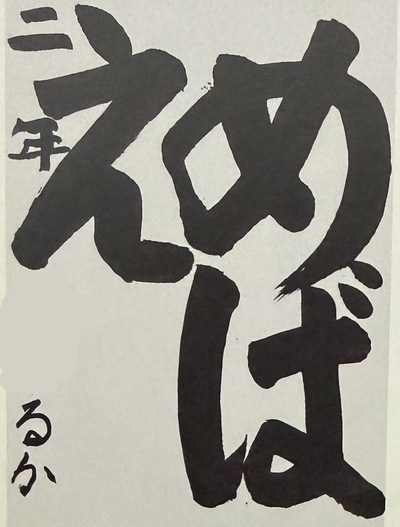 めば
え
二年 るか